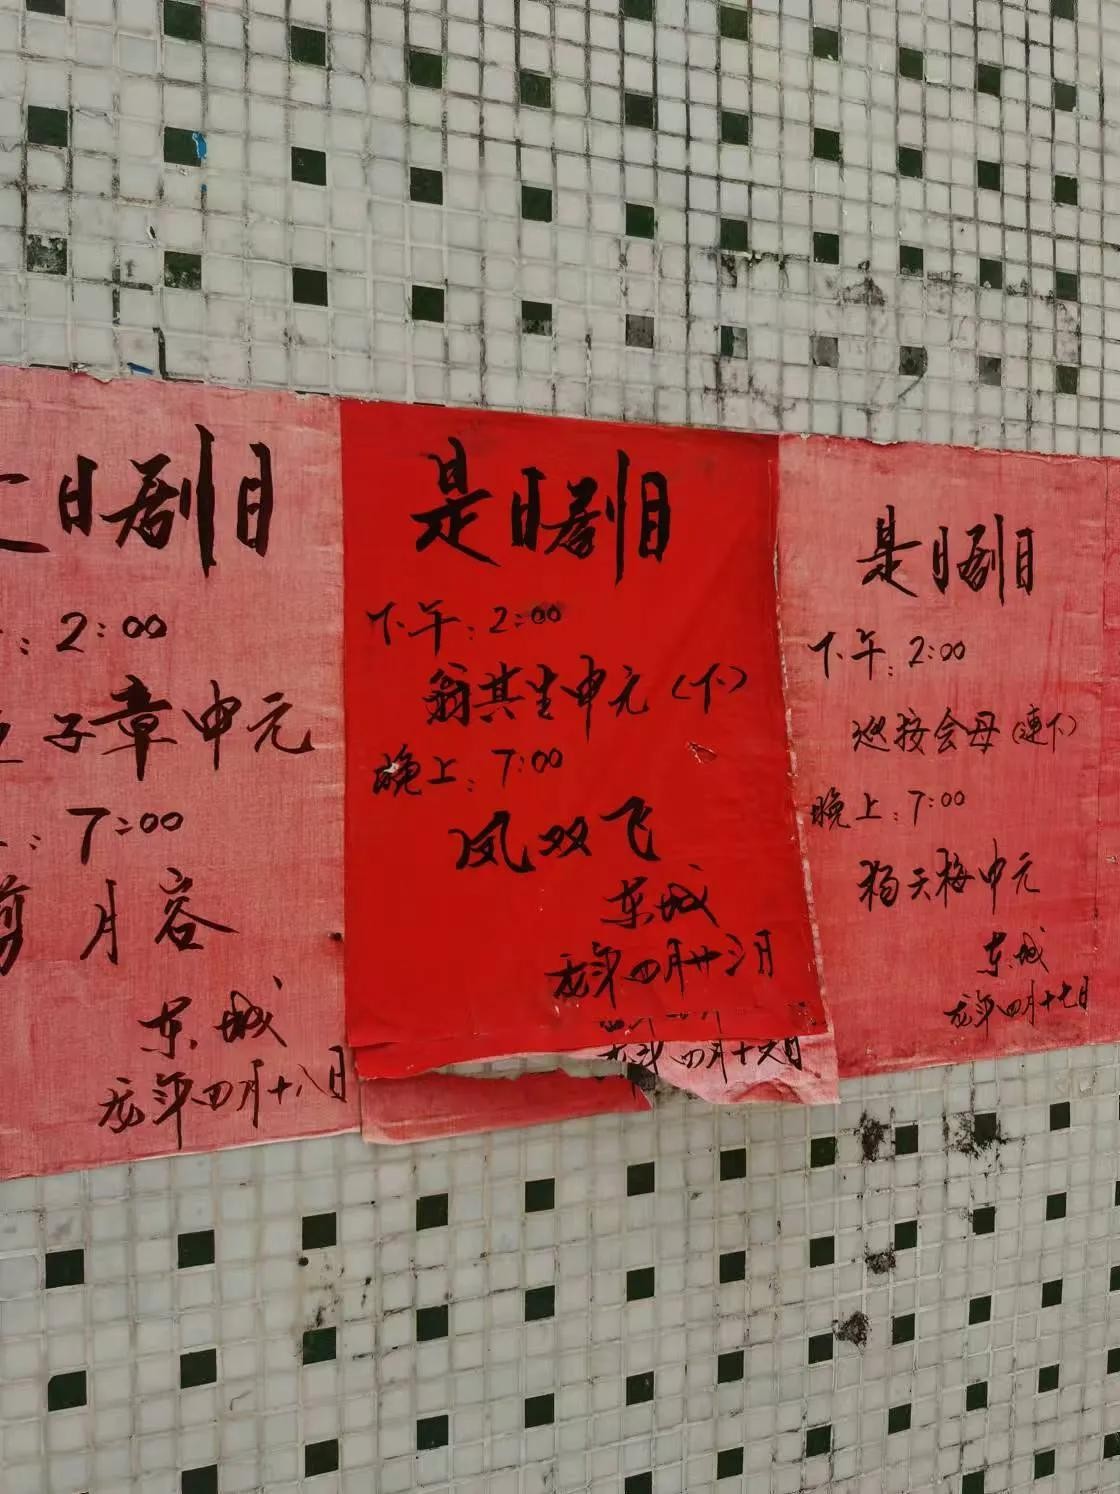 是日剧目
: 2:00
子章中元
: 7:00
剪月容
东城
龙年四月十八日
是日剧目
下午: 2:00
翁其生中元（下）
晚上: 7:00
凤双飞
东城
龙年四月廿三日
龙年四月十六日
是日剧目
下午: 2:00
巡按会母（连下）
晚上: 7:00
杨天梅中元
东城
龙年四月十七日